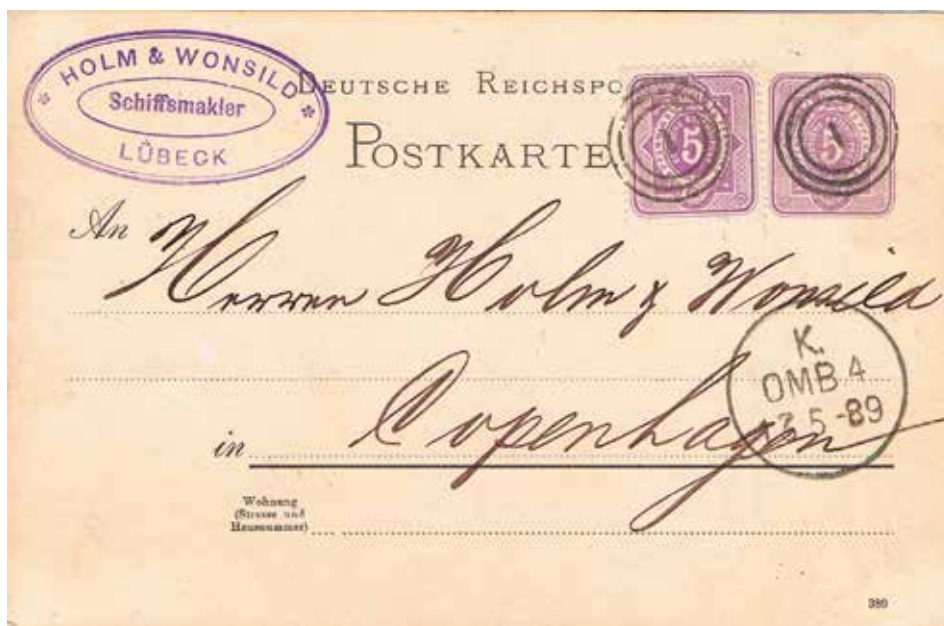 * HOLM & WONSILD *
Schiffsmakler
LÜBECK
DEUTSCHE REICHSPO
POSTKARTE
5
1
5
1
An Herren Holm & Wonsild
K.
OMB 4
5 -89
in Copenhagen
Wohnung
(Strasse und
Hausnummer)
389